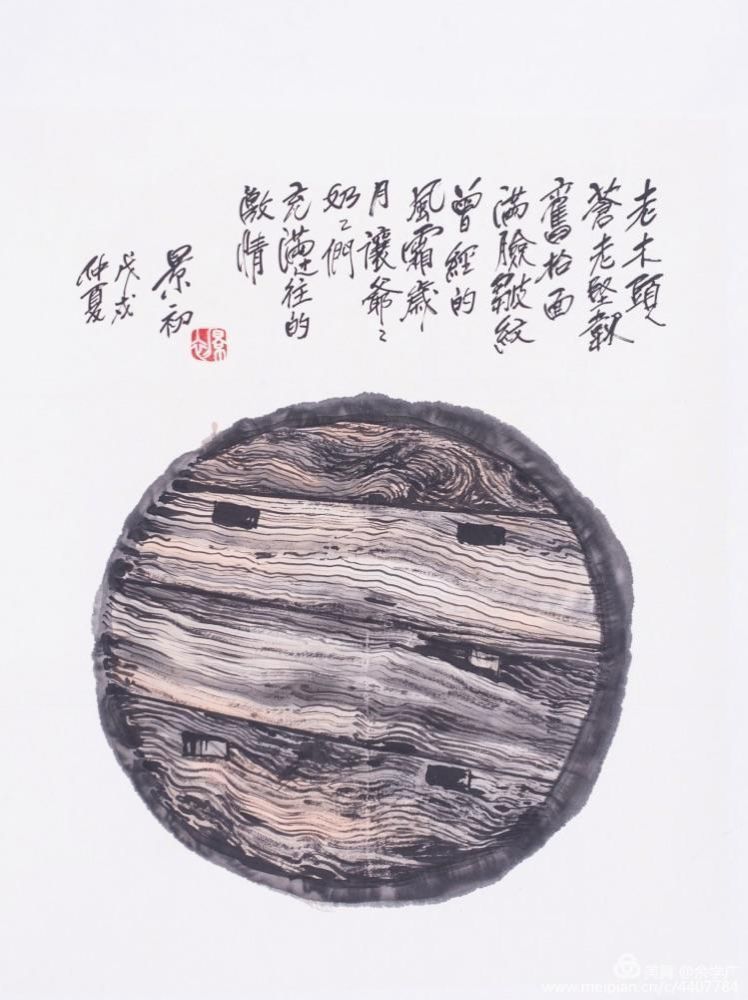 老木頭
蒼老堅韌
舊拾面
滿臉皺紋
曾經的
風霜歲
月讓爺〻
奶〻們
充滿過往的
激情
景初
戊戌
仲夏
美篇 @余学广
www.meipian.cn/c/4407784